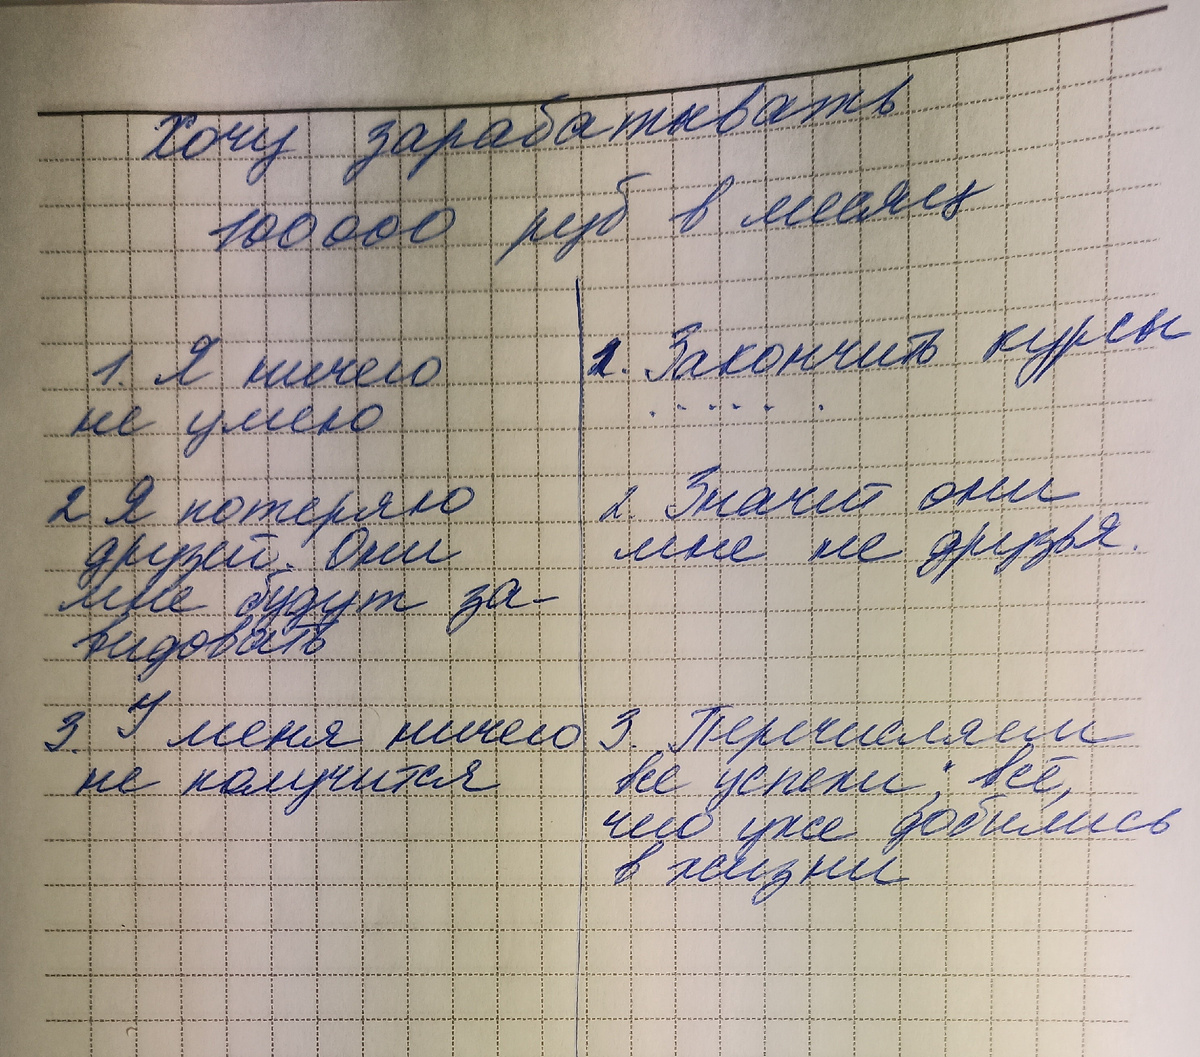 Хочу зарабатывать
100000 руб в месяц
1. Я ничего
не умею
2 Я потеряю
друзей. Они
мне будут за-
видовать
3. У меня ничего
не получится
1. Закончить курсы
. . . . . .
2. Значит они
мне не друзья.
3. Перечисляем
все успехи; всё,
чего уже добились
в жизни